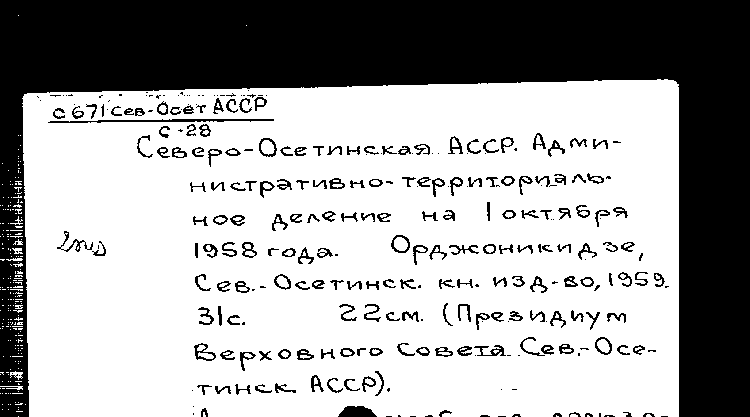 С671 Сев-Осет АССР
С-28
Северо-Осетинская АССР. Адми-
нистративно-территориаль-
ное деление на 1 октября
1958 года. Орджоникидзе,
Сев.-Осетинск. кн. изд-во, 1959.
31с. 22см. (Президиум
Верховного Совета Сев.-Осе-
тинск. АССР).